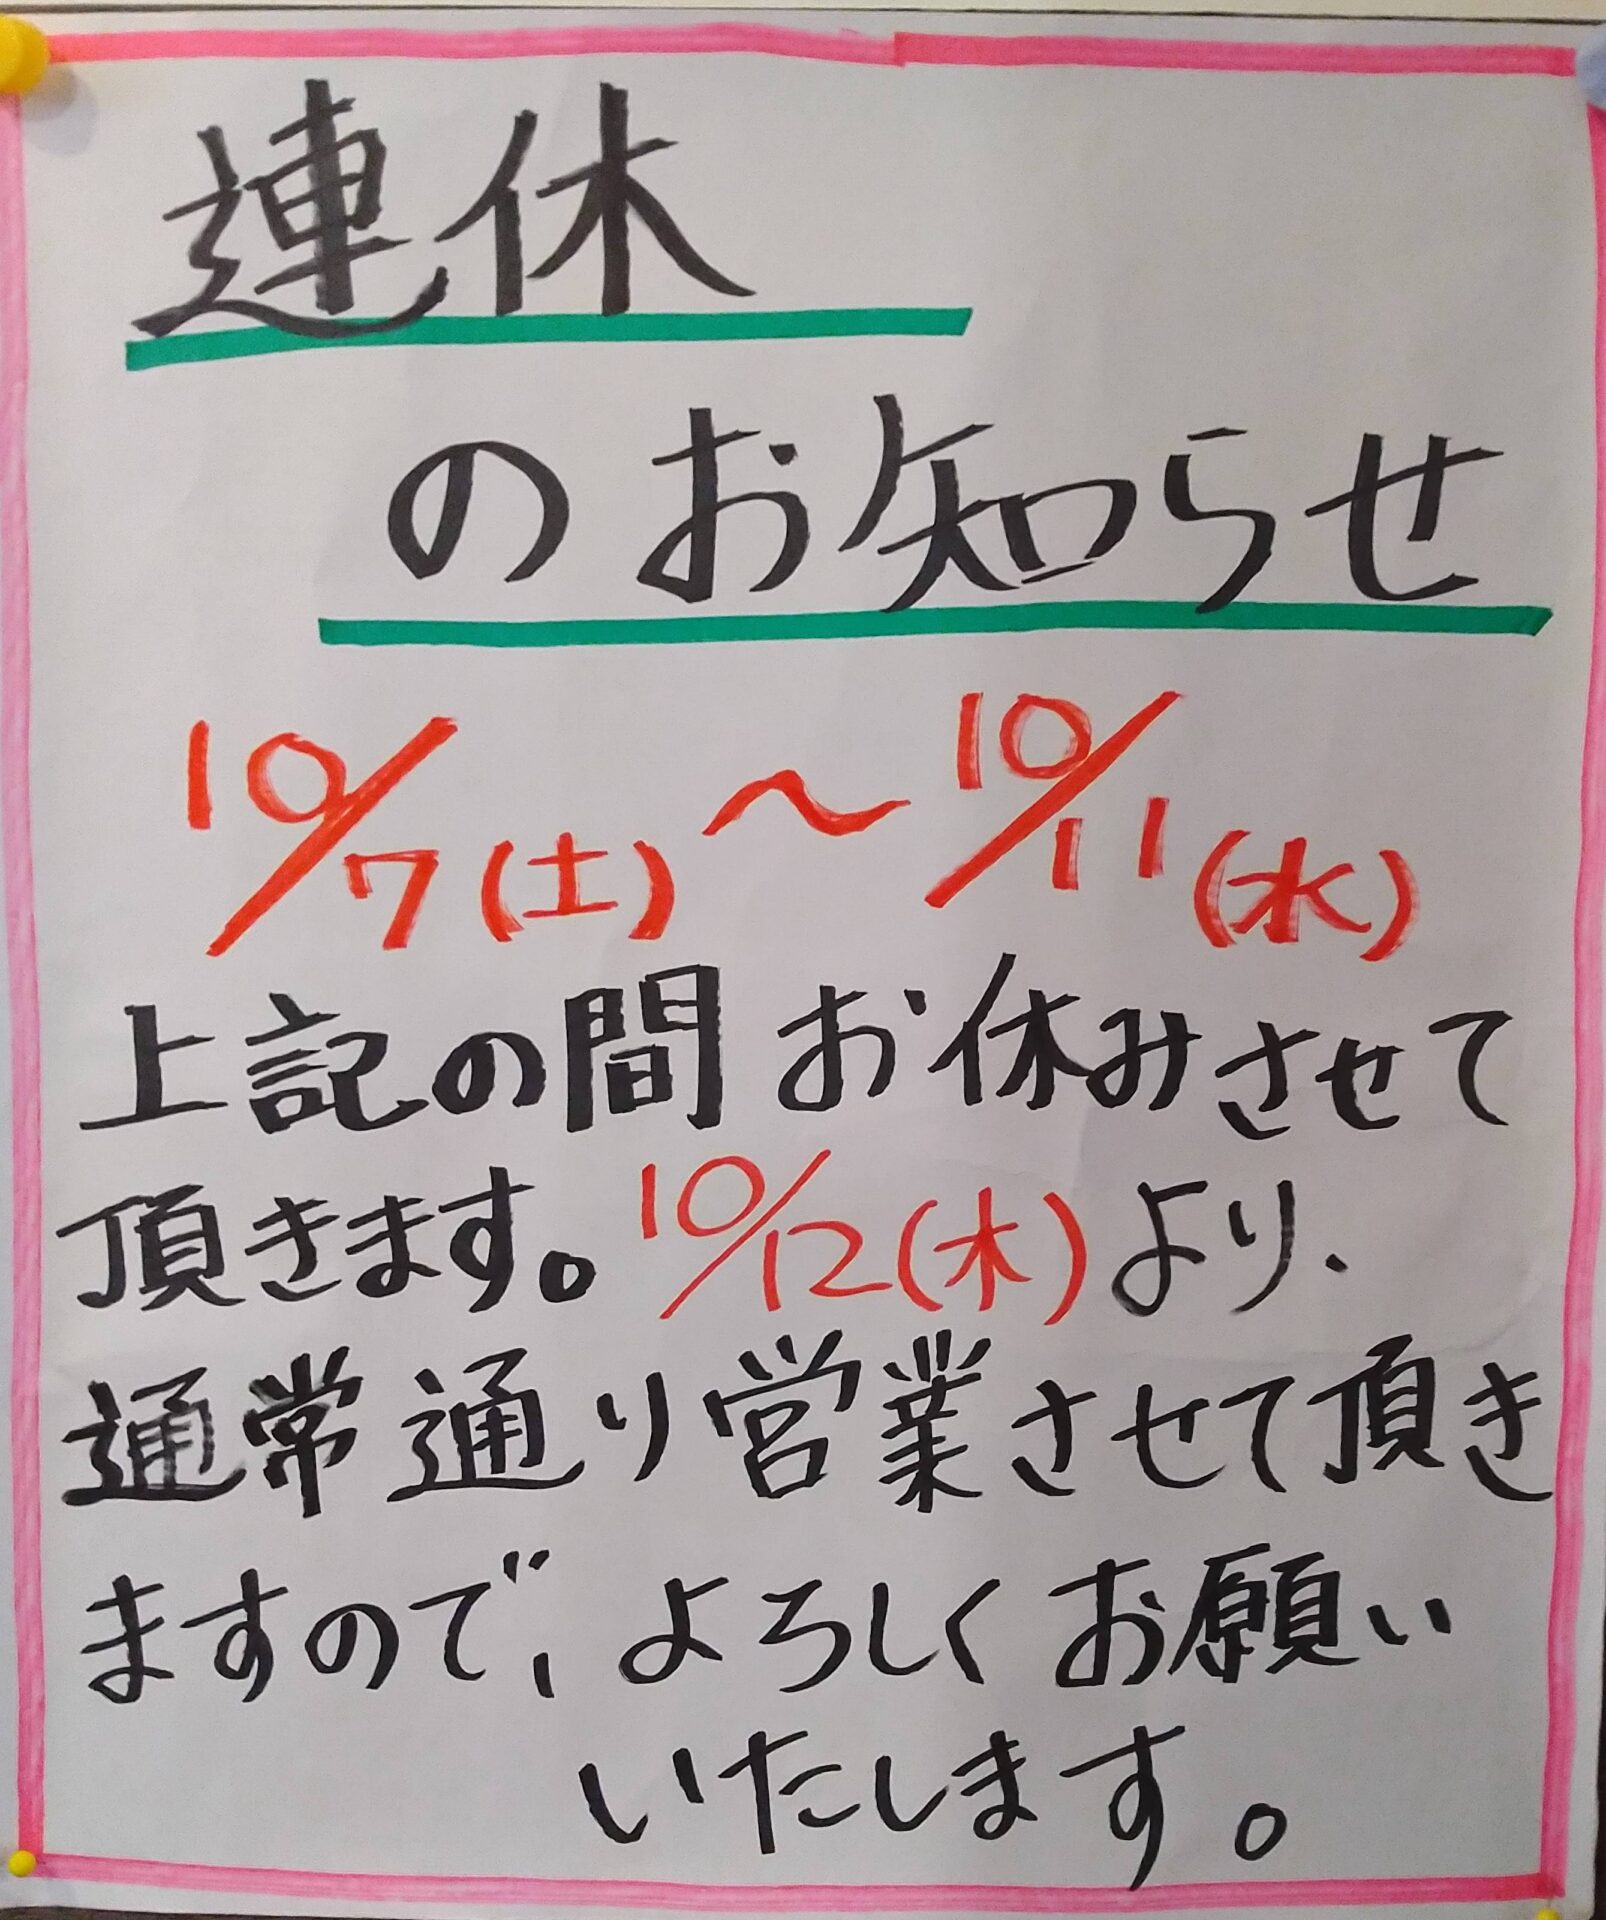 連休
のお知らせ
10/7(土)〜10/11(水)
上記の間お休みさせて
頂きます。10/12(木)より、
通常通り営業させて頂き
ますので、よろしくお願い
いたします。